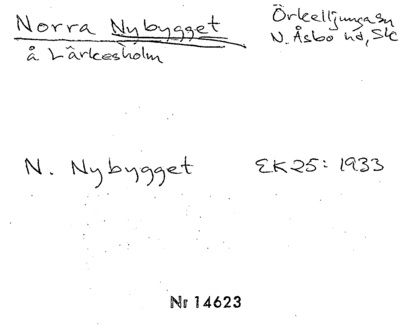 Norra Nybygget
å Lärkesholm
Örkelljunga sn
N. Åsbo hd, Sk
N. Nybygget EK 25: 1933
Nr 14623